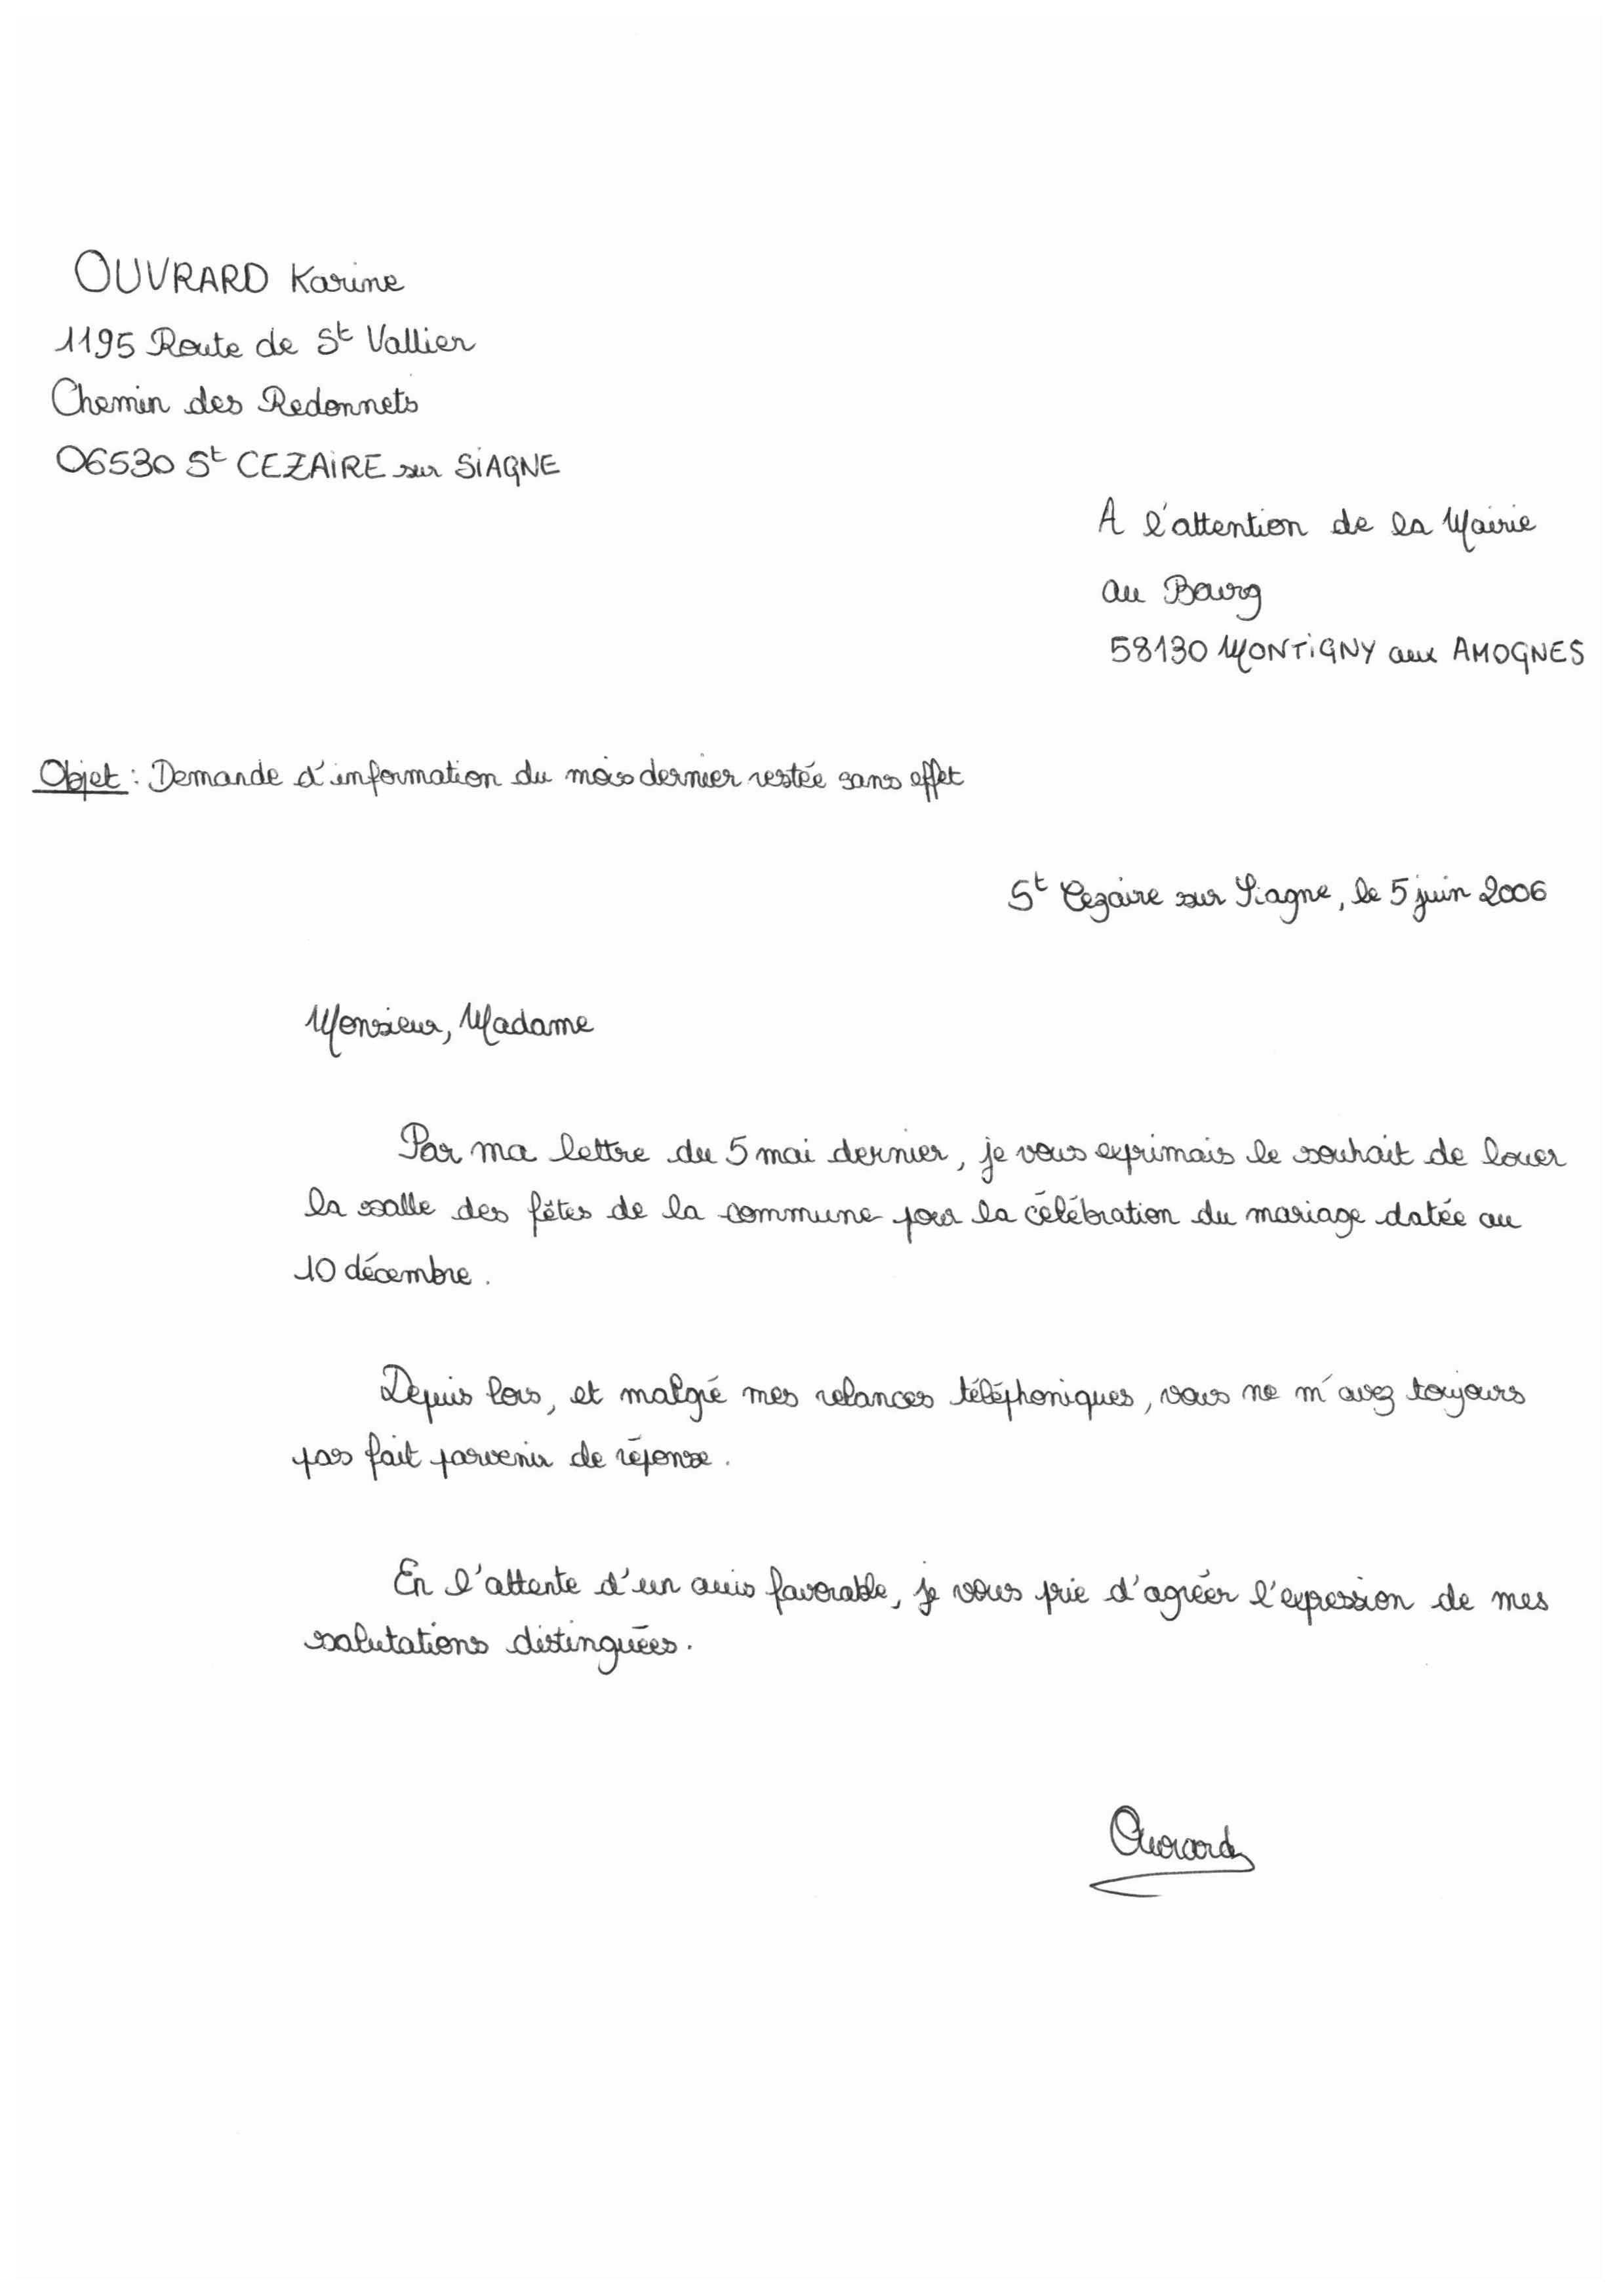 OUVRARD Karine
1195 Route de St Vallier
Chemin des Redonnets
06530 St CEZAIRE sur SIAGNE
A l'attention de la Mairie
au Bourg
58130 MONTIGNY aux AMOGNES
Objet : Demande d'information du mois dernier restée sans effet
St Cezaire sur Siagne, le 5 juin 2006
Monsieur, Madame
Par ma lettre du 5 mai dernier, je vous exprimais le souhait de louer
la salle des fêtes de la commune pour la célébration du mariage datée au
10 décembre.
Depuis lors, et malgré mes relances téléphoniques, vous ne m'avez toujours
pas fait parvenir de réponse.
En l'attente d'un avis favorable, je vous prie d'agréer l'expression de mes
salutations distinguées.
Ouvrard